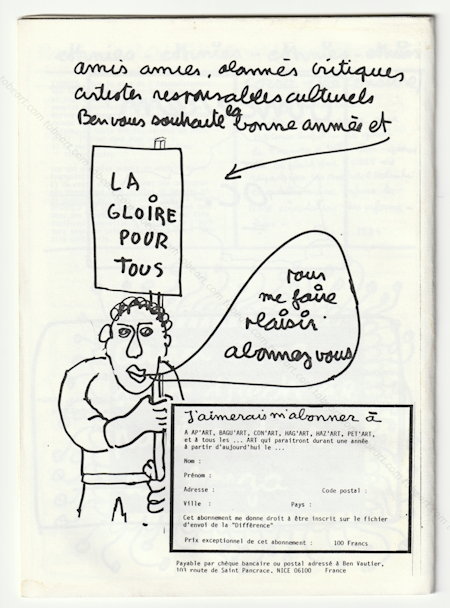 amis amies, abonnés critiques
artistes responsables culturels
Ben vous souhaite la bonne année et
LA
GLOIRE
POUR
TOUS
pour
me faire
plaisir
abonnez vous
J'aimerais m'abonner à
A AP'ART, BAGU'ART, CON'ART, HAG'ART, HAZ'ART, PET'ART,
et à tous les ... ART qui paraitront durant une année
à partir d'aujourd'hui le ...
Nom :
Prénom :
Adresse : Code postal :
Ville : Pays :
Cet abonnement me donne droit à être inscrit sur le fichier
d'envoi de la "Différence"
Prix exceptionnel de cet abonnement : 100 Francs
Payable par chèque bancaire ou postal adressé à Ben Vautier,
103 route de Saint Pancrace, NICE 06100 France